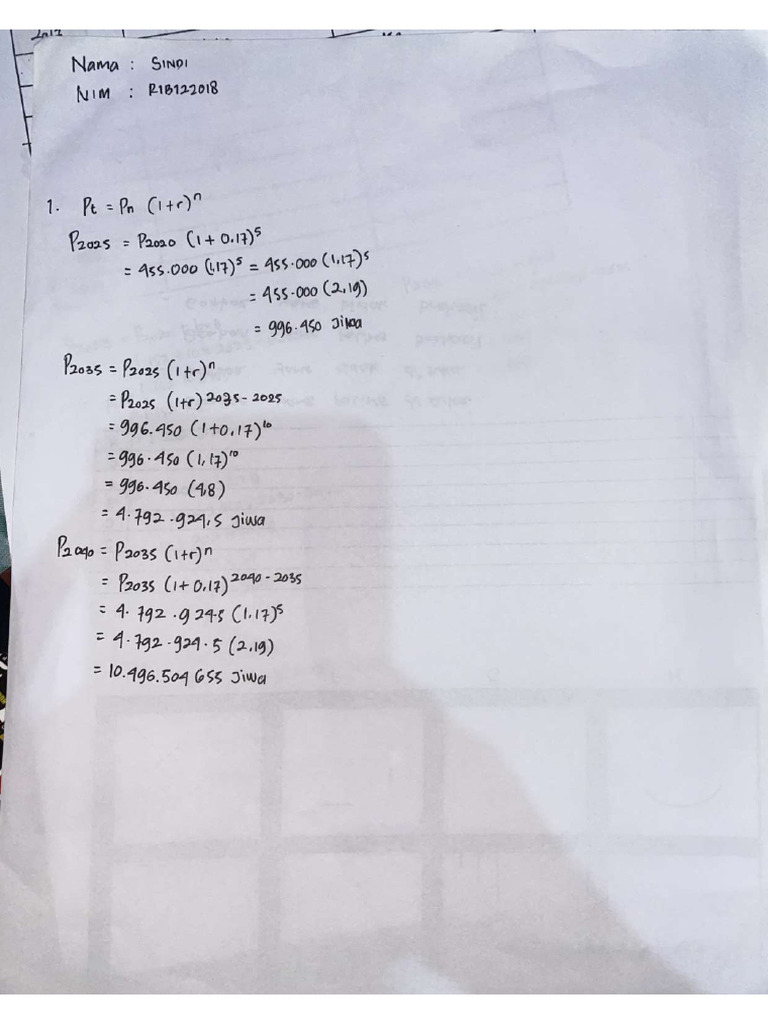 2017
Nama : SINDI
NIM : R1B122018
1. Pt = Pn (1+r)^n
P2025 = P2020 (1 + 0.17)^5
= 455.000 (1,17)^5 = 455.000 (1,17)^5
= 455.000 (2,19)
= 996.450 Jiwa
P2035 = P2025 (1+r)^n
= P2025 (1+r)^2035-2025
= 996.450 (1+0,17)^10
= 996.450 (1,17)^10
= 996.450 (4,8)
= 4.792.924,5 Jiwa
P2040 = P2035 (1+r)^n
= P2035 (1+0.17)^2040-2035
= 4.792.924.5 (1.17)^5
= 4.792.924.5 (2,19)
= 10.496.504 655 Jiwa